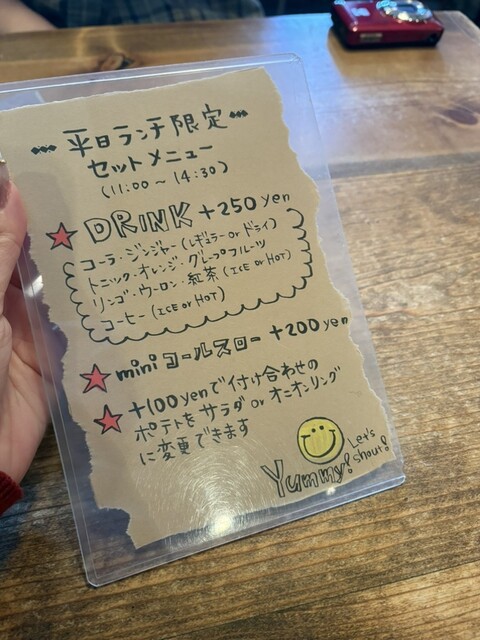 平日ランチ限定
セットメニュー
(11:00～14:30)
DRINK +250yen
コーラ・ジンジャー(レギュラー or ドライ)
トニック・オレンジ・グレープフルーツ
リンゴ・ウーロン・紅茶(ICE or HOT)
コーヒー(ICE or HOT)
mini コールスロー +200yen
+100yenで付け合わせの
ポテトをサラダ or オニオンリング
に変更できます
Yummy! Let's
shout!